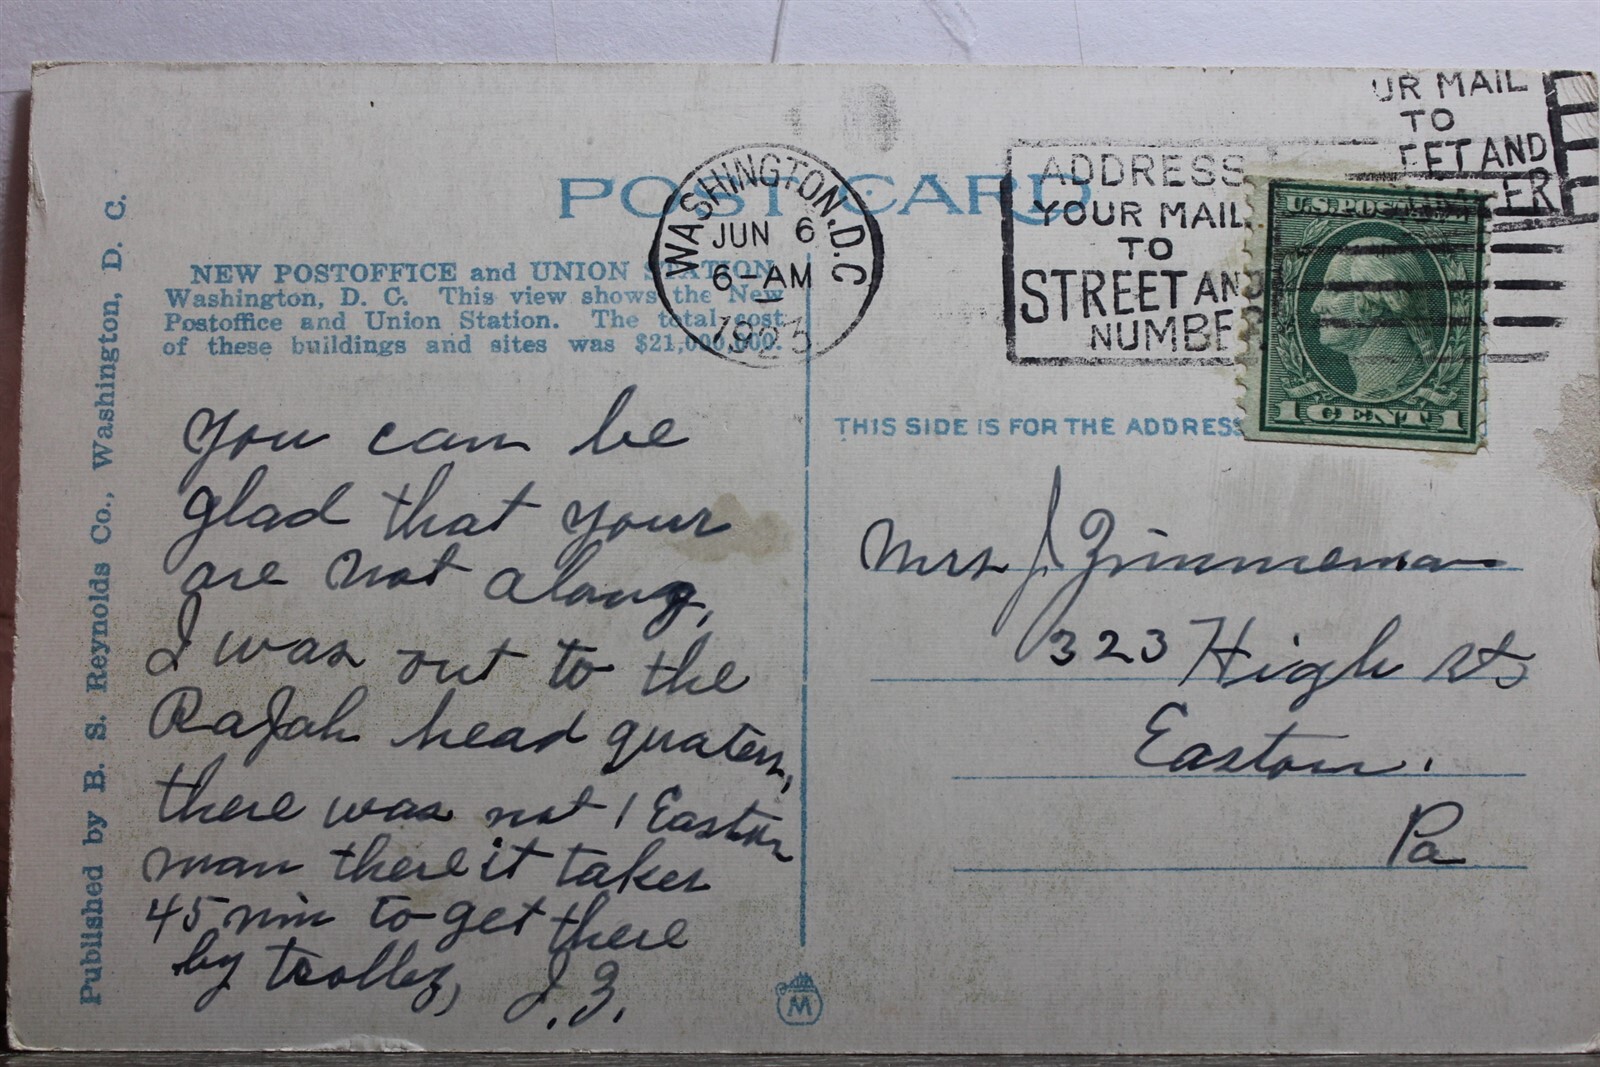 POST CARD
WASHINGTON, D.C.
JUN 6
6-AM
1923
ADDRESS
YOUR MAIL
TO
STREET AND
NUMBER
UR MAIL
TO
EET AND
ER
U.S. POSTAGE
1 CENT 1
NEW POSTOFFICE and UNION STATION,
Washington, D. C. This view shows the New
Postoffice and Union Station. The total cost
of these buildings and sites was $21,000,000.
Published by B. S. Reynolds Co., Washington, D. C.
You can be
glad that your
are not along,
I was out to the
Rajah head quaters,
there was not 1 Easton
man there it takes
45 min to get there
by trolley, J.Z.
THIS SIDE IS FOR THE ADDRESS
Mrs J Zimmeman
323 High St
Easton.
Pa
M